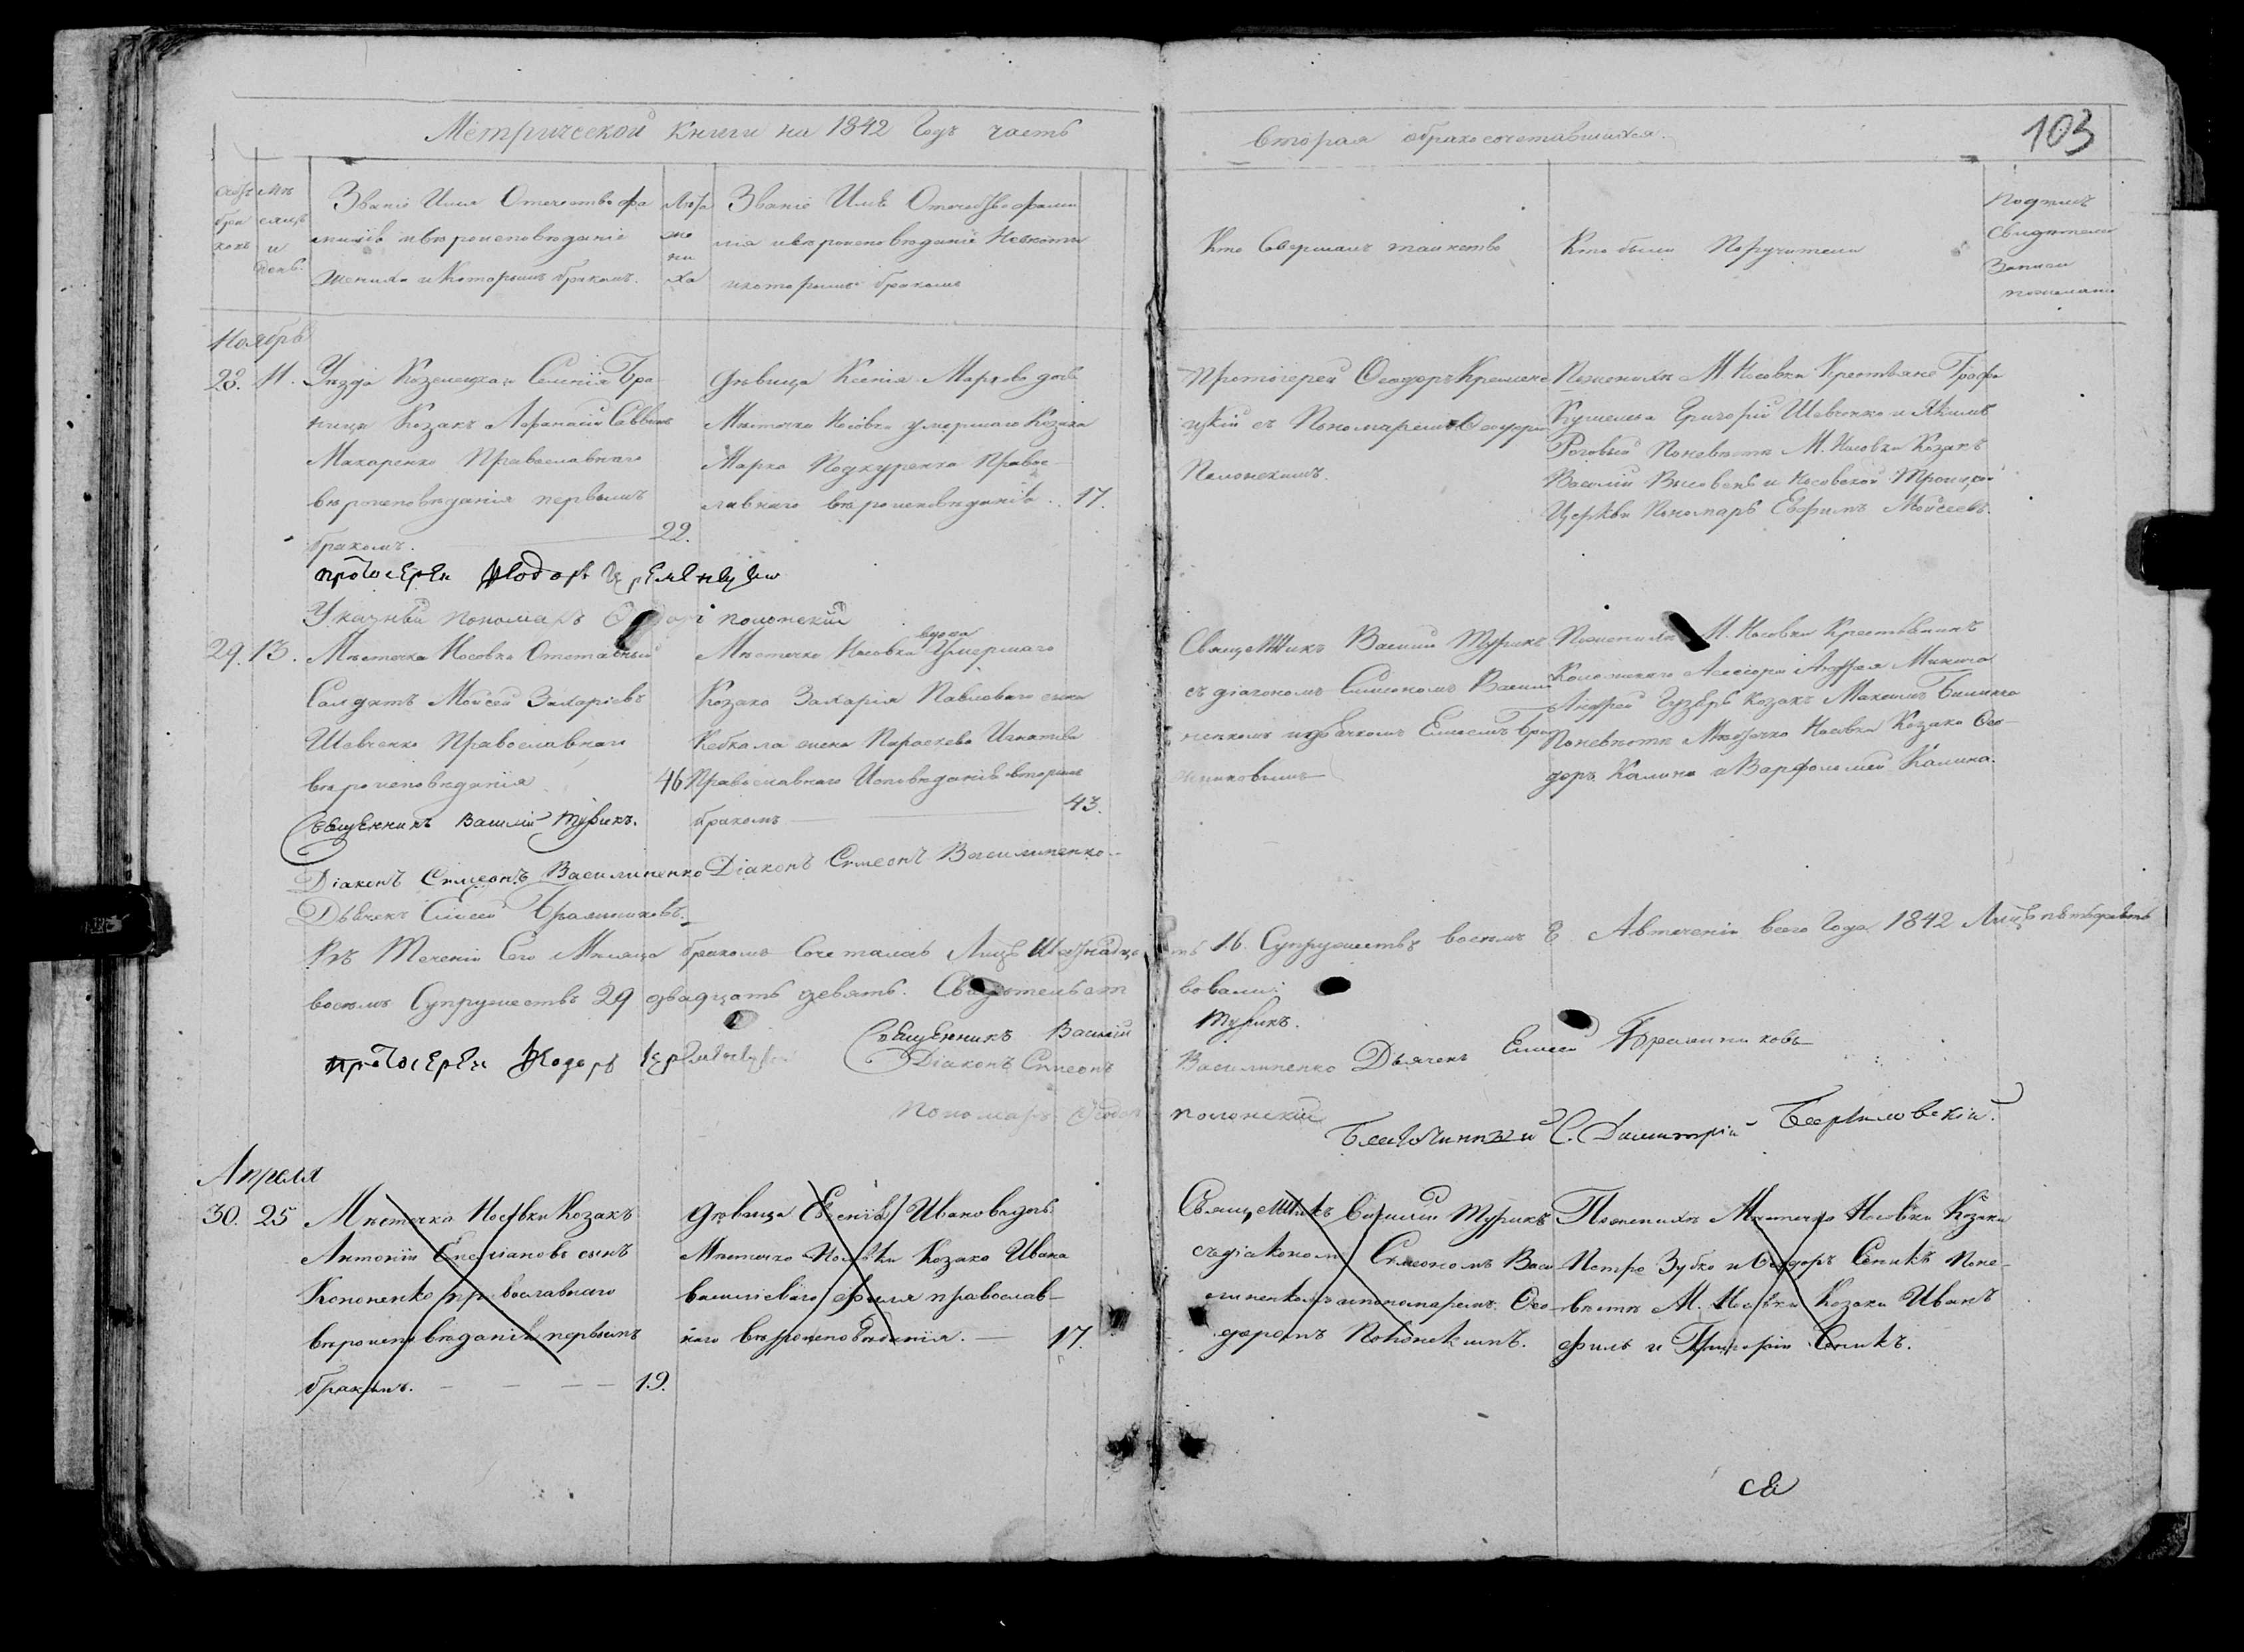 Метрической Книги на 1842 Годъ часть
вторая о бракосочетавшихся.
103
Мѣ
сяцъ
и
день.
Званіе Имя Отечество фа
милія и вѣроисповѣданіе
жениха и Которымъ бракомъ.
Лѣта
же
ни
ха
Званіе Имя Отечество фами
лія и вѣроисповѣданіе Невѣсты
и которымъ бракомъ
Кто Совершалъ таинство
Кто были Поручители
Подпись
Свидѣтелей
Записи
по желанію
Ноябрь
28. 11.
Уѣзда Козелецкаго Селенія Бра
ница Козакъ Афанасій Саввинъ
Макаренко Православнаго
вѣроисповѣданія первымъ
бракомъ. 22.
дѣвица Ксенія Маркова дочь
Мѣстечка Носовки умершаго Козака
Марка Подкуренка Правос-
лавнаго вѣроисповѣданія. 17.
Протоіерей Феодоръ Кременец
цкій съ Пономаремъ Феодоромъ
Полонскимъ.
По женихѣ М. Носовки Крестьяне Графа
Кушелева Григорій Шевченко и Якимъ
Роговый По невѣстѣ М. Носовки Козакъ
Василій Высовень и Носовской Троицкой
Церкви Пономарь Евфимъ Мойсеевъ.
протоіерей Феодоръ Кременецкій
Указный пономарь Феодоръ полонский
29. 13.
Мѣстечка Носовки Отставный
Салдатъ Мойсей Захаріевъ
Шевченко Православнаго
вѣроисповѣданія 46
вдова
Мѣстечка Носовки Умершаго
Козака Захарія Павловаго сына
Кебкала жена Параскева Игнатіева
Православнаго Исповѣданія вторымъ
бракомъ 43.
Священникъ Василій Турикъ
съ діакономъ Симеономъ Васили
ненкомъ и дьячкомъ Елисеемъ Бра
жниковымъ
По женихѣ М. Носовки Крестьянинъ
Андрей Гузарь Козакъ Максимъ
По невѣстѣ Мѣстечка Носовки Козаки Фео-
доръ Калина и Варфоломей Калина.
Священникъ Василій Турикъ.
Діаконъ Симеонъ Василиненко Діаконъ Симеонъ Василиненко
Дьячекъ Елисей Бражниковъ.
Въ Теченіи Сего Мѣсяца бракомъ Сочеталась Лицъ Шестнадца
ть 16. Супружествъ восемь 8. А в теченіи всего Года 1842 Лицъ пятьдесятъ
восемь Супружествъ 29 двадцать девять. Свидѣтельст
вовали:
протоіерей Феодоръ Кременецкій
Священникъ Василій Турикъ.
Діаконъ Симеонъ Василиненко Дьячекъ Елисей Бражниковъ
Пономарь Феодоръ полонский
Благочинный С. Димитрій
Апреля
30. 25
Мѣстечка Носовки Козакъ
Антоній Емеліановъ сынъ
Кононенко православнаго
вѣроисповѣданія первымъ
бракомъ. 19.
дѣвица Евгенія Иванова дочь
Мѣстечка Носовки Козака Ивана
василіеваго филя православ-
наго вѣроисповѣданія. 17.
Священникъ Василій Турикъ
съ діакономъ Симеономъ Васи
линенкомъ и пономаремъ Фео-
доромъ Полонскимъ.
По женихѣ Мѣстечка Носовки Козаки
Петро Зубко и Феодоръ Сеникъ По не-
вѣстѣ М. Носовки Козаки Иванъ
филь и Григорій Сеникъ.